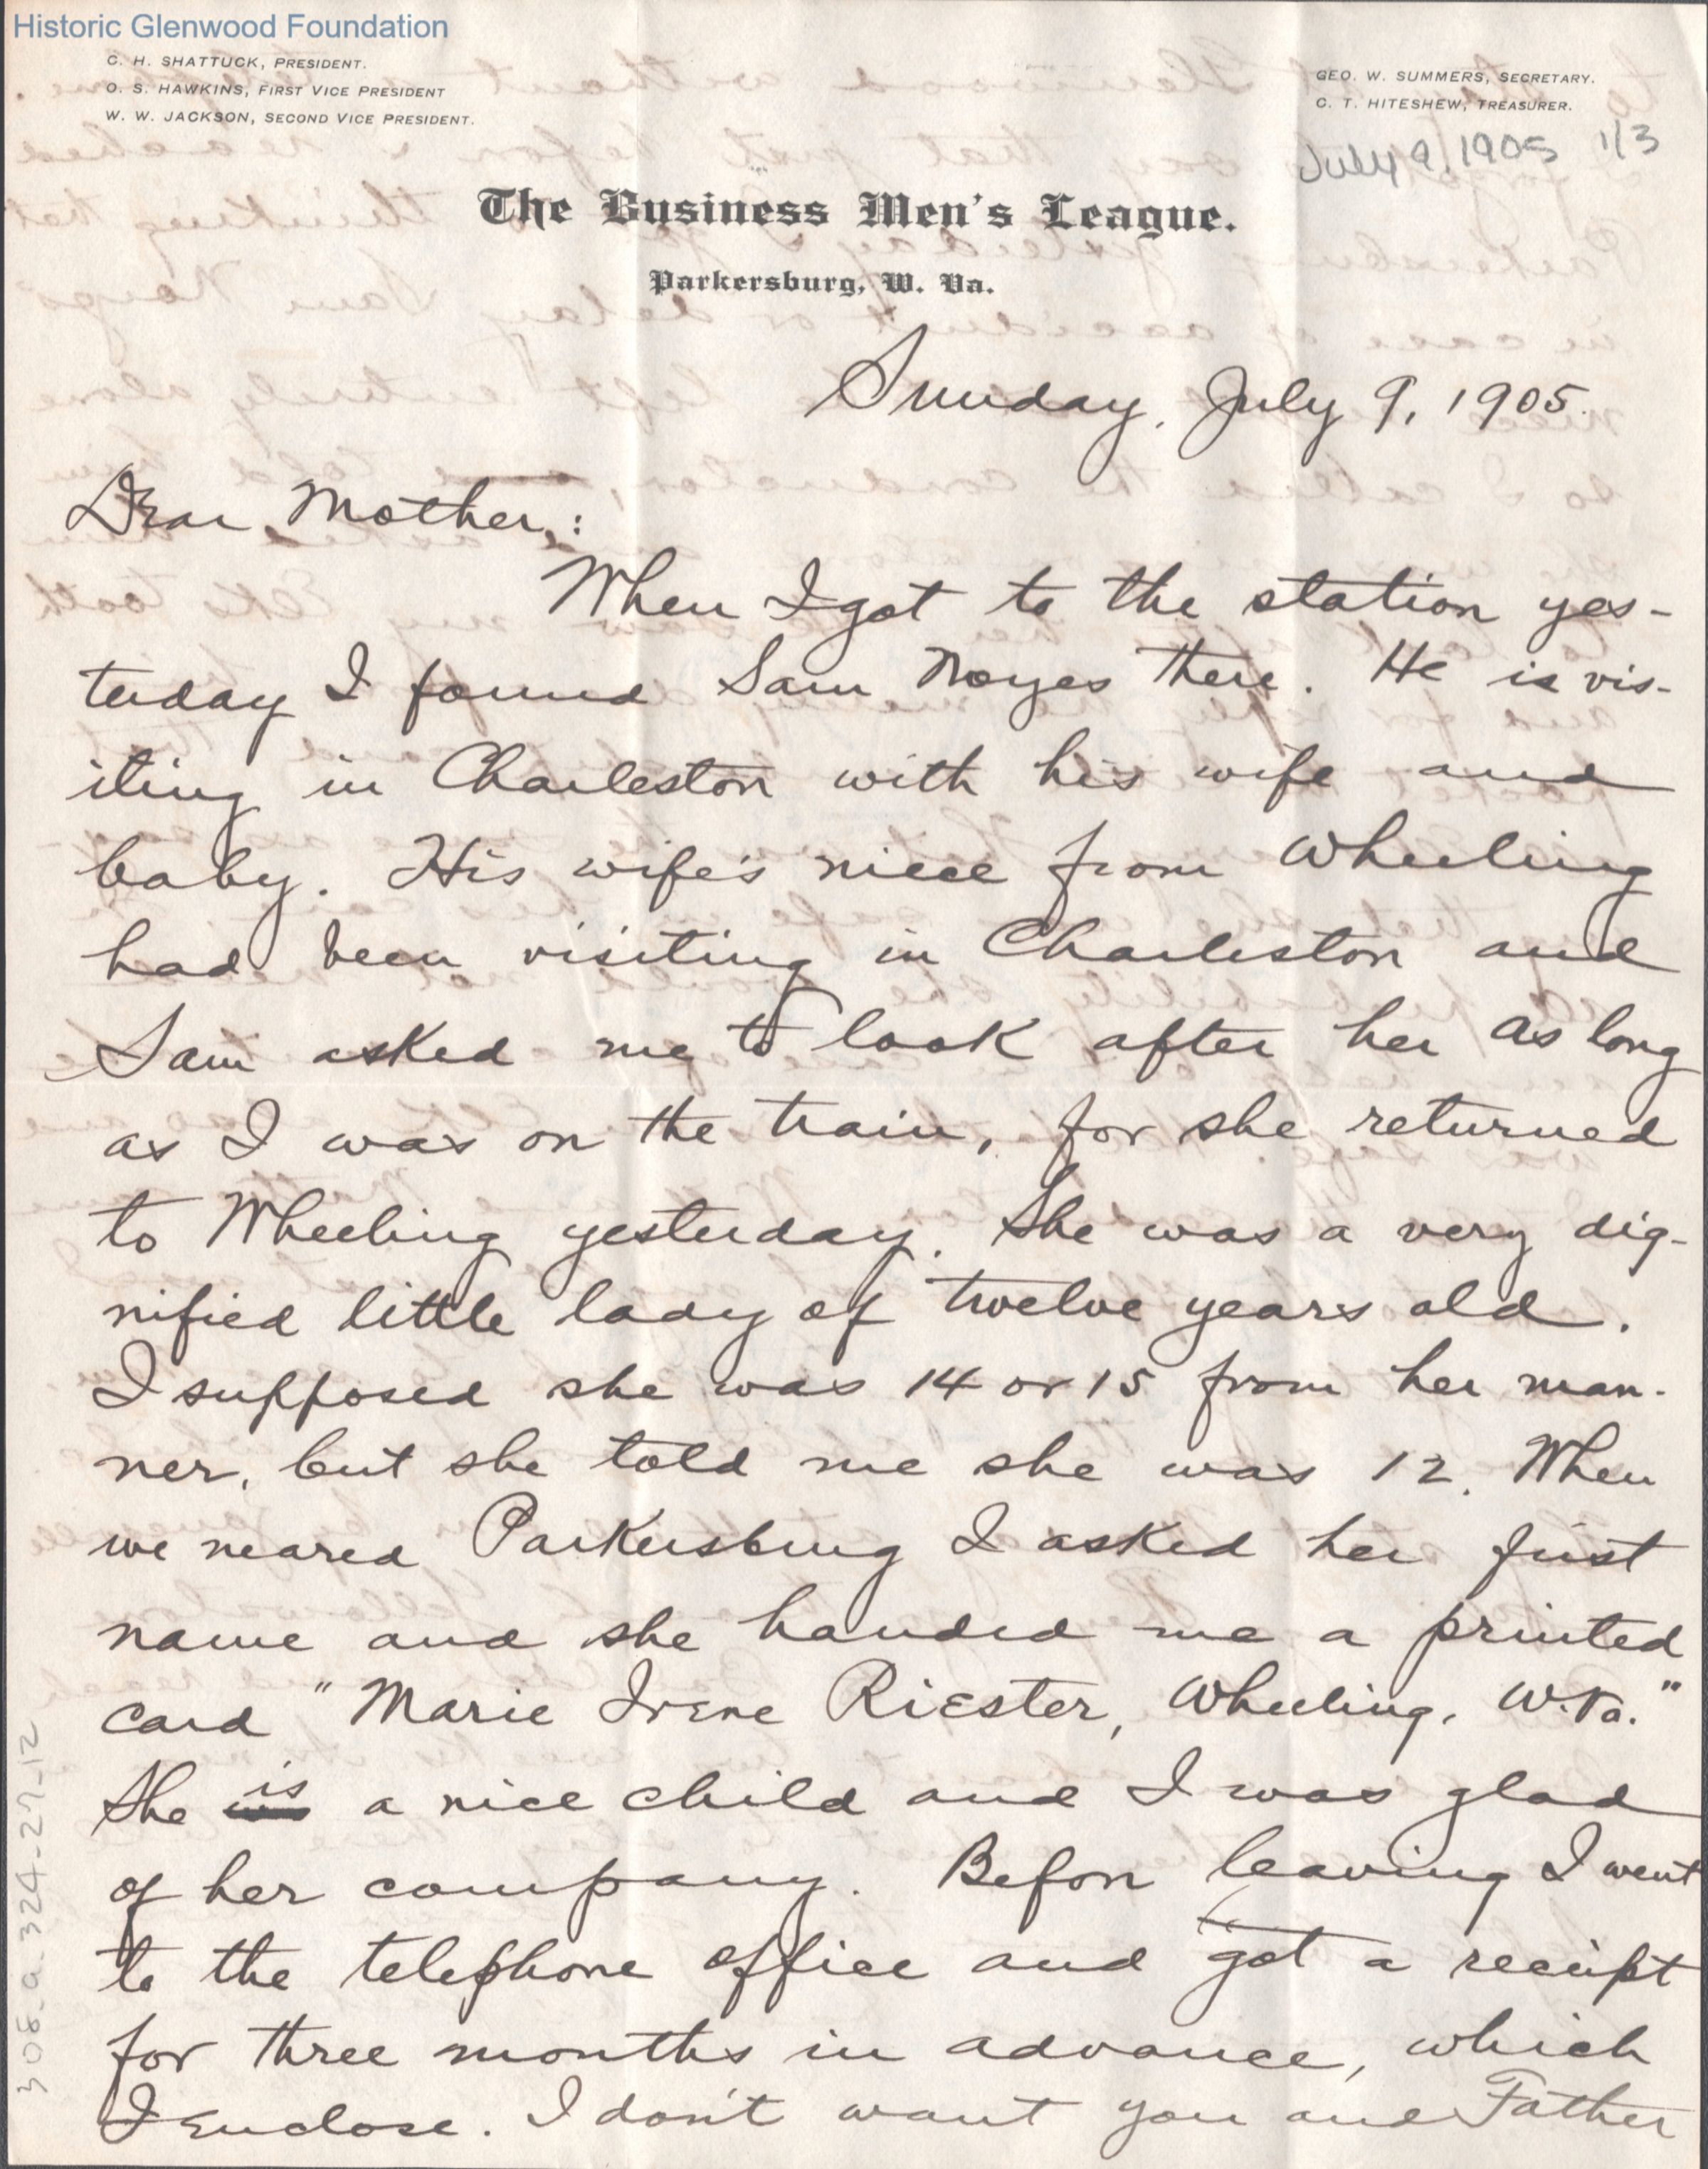 Historic Glenwood Foundation
C. H. SHATTUCK, PRESIDENT.
O. S. HAWKINS, FIRST VICE PRESIDENT
W. W. JACKSON, SECOND VICE PRESIDENT.
GEO. W. SUMMERS, SECRETARY.
C. T. HITESHEW, TREASURER.
July 9, 1905 1/3
The Business Men's League.
Parkersburg, W. Va.
Sunday, July 9, 1905.
Dear Mother,:
When I got to the station yes-
terday I found Sam Noyes there. He is vis-
iting in Charleston with his wife and
baby. His wife's niece from Wheeling
had been visiting in Charleston and
Sam asked me to look after her as long
as I was on the train, for she returned
to Wheeling yesterday. She was a very dig-
nified little lady of twelve years old.
I supposed she was 14 or 15 from her man-
ner, but she told me she was 12. When
we neared Parkersburg I asked her first
name and she handed me a printed
card "Marie Irene Riester, Wheeling, W.Va."
She is a nice child and I was glad
of her company. Before leaving I went
to the telephone office and got a receipt
for three months in advance, which
I enclose. I don't want you and Father
308.a.324-27-12